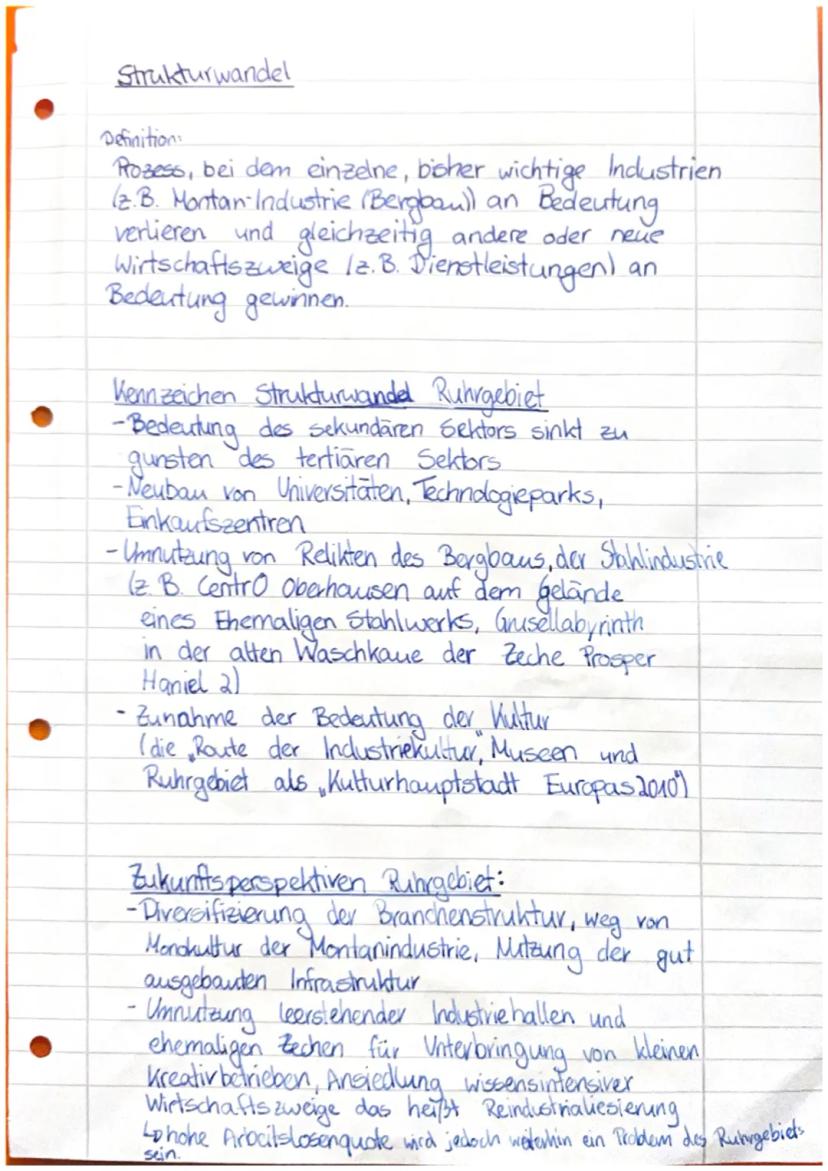 Strukturwandel
Definition:
Prozess, bei dem einzelne, bisher wichtige Industrien
(z.B. Montan-Industrie (Bergbau)) an Bedeutung
verlieren und gleichzeitig andere oder neue
Wirtschaftszweige (z.B. Dienstleistungen) an
Bedeutung gewinnen.
Kennzeichen Strukturwandel Ruhrgebiet
-Bedeutung des sekundären Sektors sinkt zu
gunsten des tertiären Sektors
-Neubau von Universitäten, Technologieparks,
Einkaufszentren
-Umnutzung von Relikten des Bergbaus, der Stahlindustrie
(z.B. CentrO Oberhausen auf dem Gelände
eines Ehemaligen Stahlwerks, Grusellabyrinth
in der alten Waschkaue der Zeche Prosper
Haniel 2)
- Zunahme der Bedeutung der Kultur
(die „Route der Industriekultur," Museen und
Ruhrgebiet als „Kulturhauptstadt Europas 2010")
Zukunftsperspektiven Ruhrgebiet:
-Diversifizierung der Branchenstruktur, weg von
Monokultur der Montanindustrie, Nutzung der gut
ausgebauten Infrastruktur
- Umnutzung leerstehender Industriehallen und
ehemaligen Zechen für Unterbringung von kleinen
Kreativbetrieben, Ansiedlung wissensintensiver
Wirtschaftszweige das heißt Reindustrialiesierung
↳ hohe Arbeitslosenquote wird jedoch weiterhin ein Problem des Ruhrgebiets
sein.